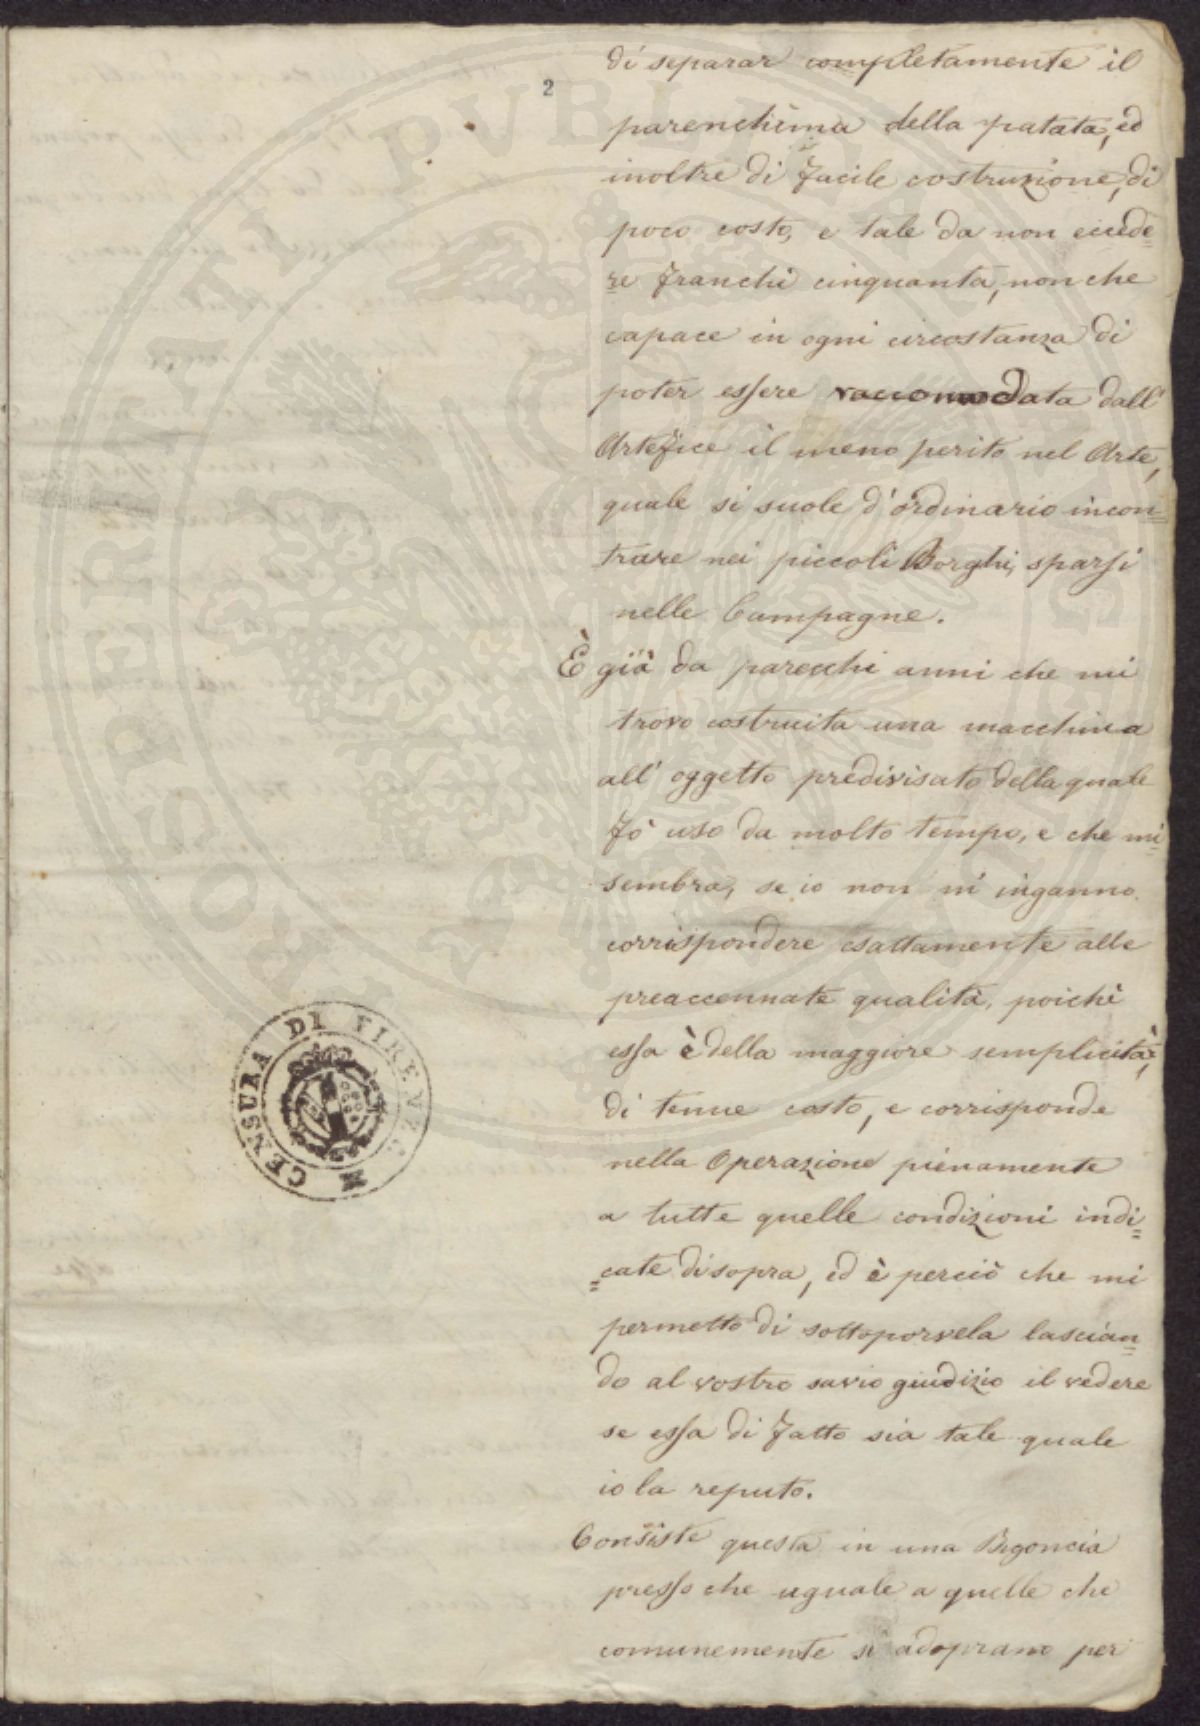 2
di separar completamente il
parenchima della patata, ed
inoltre di facile costruzione, di
poco costo, e tale da non eccede=
re franchi cinquanta, non che
capace in ogni circostanza di
poter essere raccomodata dall'
Artefice il meno perito nel Arte,
quale si suole d'ordinario incon=
trare nei piccoli Borghi, sparsi
nelle Campagne.
È già da parecchi anni che mi
trovo costruita una macchina
all' oggetto predivisato della quale
fò uso da molto tempo, e che mi
sembra, se io non m' inganno
corrispondere esattamente alle
preaccennate qualità, poichè
essa è della maggiore semplicità,
di tenue costo, e corrisponde
nella Operazione pienamente
a tutte quelle condizioni indi=
=cate di sopra, ed è perciò che mi
permetto di sottoporvela lascian=
do al vostro savio giudizio il vedere
se essa di fatto sia tale quale
io la reputo.
Consiste questa in una Bigoncia
presso che uguale a quelle che
comunemente si adoprano per
CENSURA DI FIRENZE
PROSPERITATI PUBLICAE